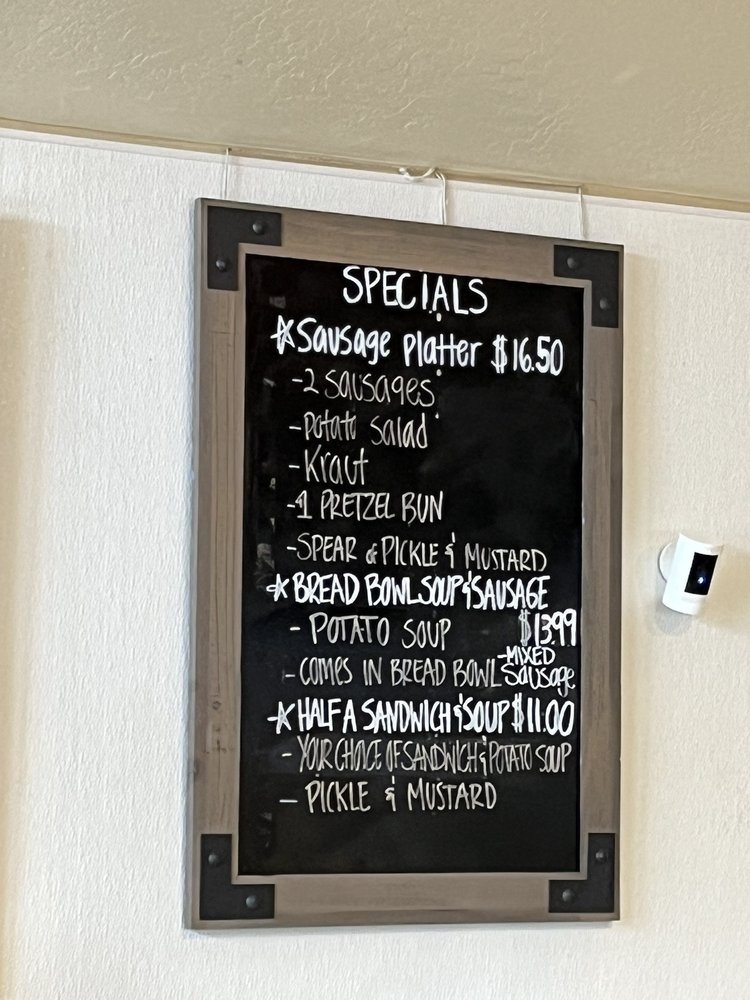 SPECIALS
☆ Sausage platter $16.50
-2 sausages
-potato salad
-Kraut
-1 PRETZEL BUN
-SPEAR of PICKLE & MUSTARD
☆ BREAD BOWL SOUP & SAUSAGE
- POTATO SOUP $13.99
- COMES IN BREAD BOWL -MIXED Sausage
☆ HALF A SANDWICH & SOUP $11.00
- YOUR CHOICE OF SANDWICH & POTATO SOUP
- PICKLE & MUSTARD